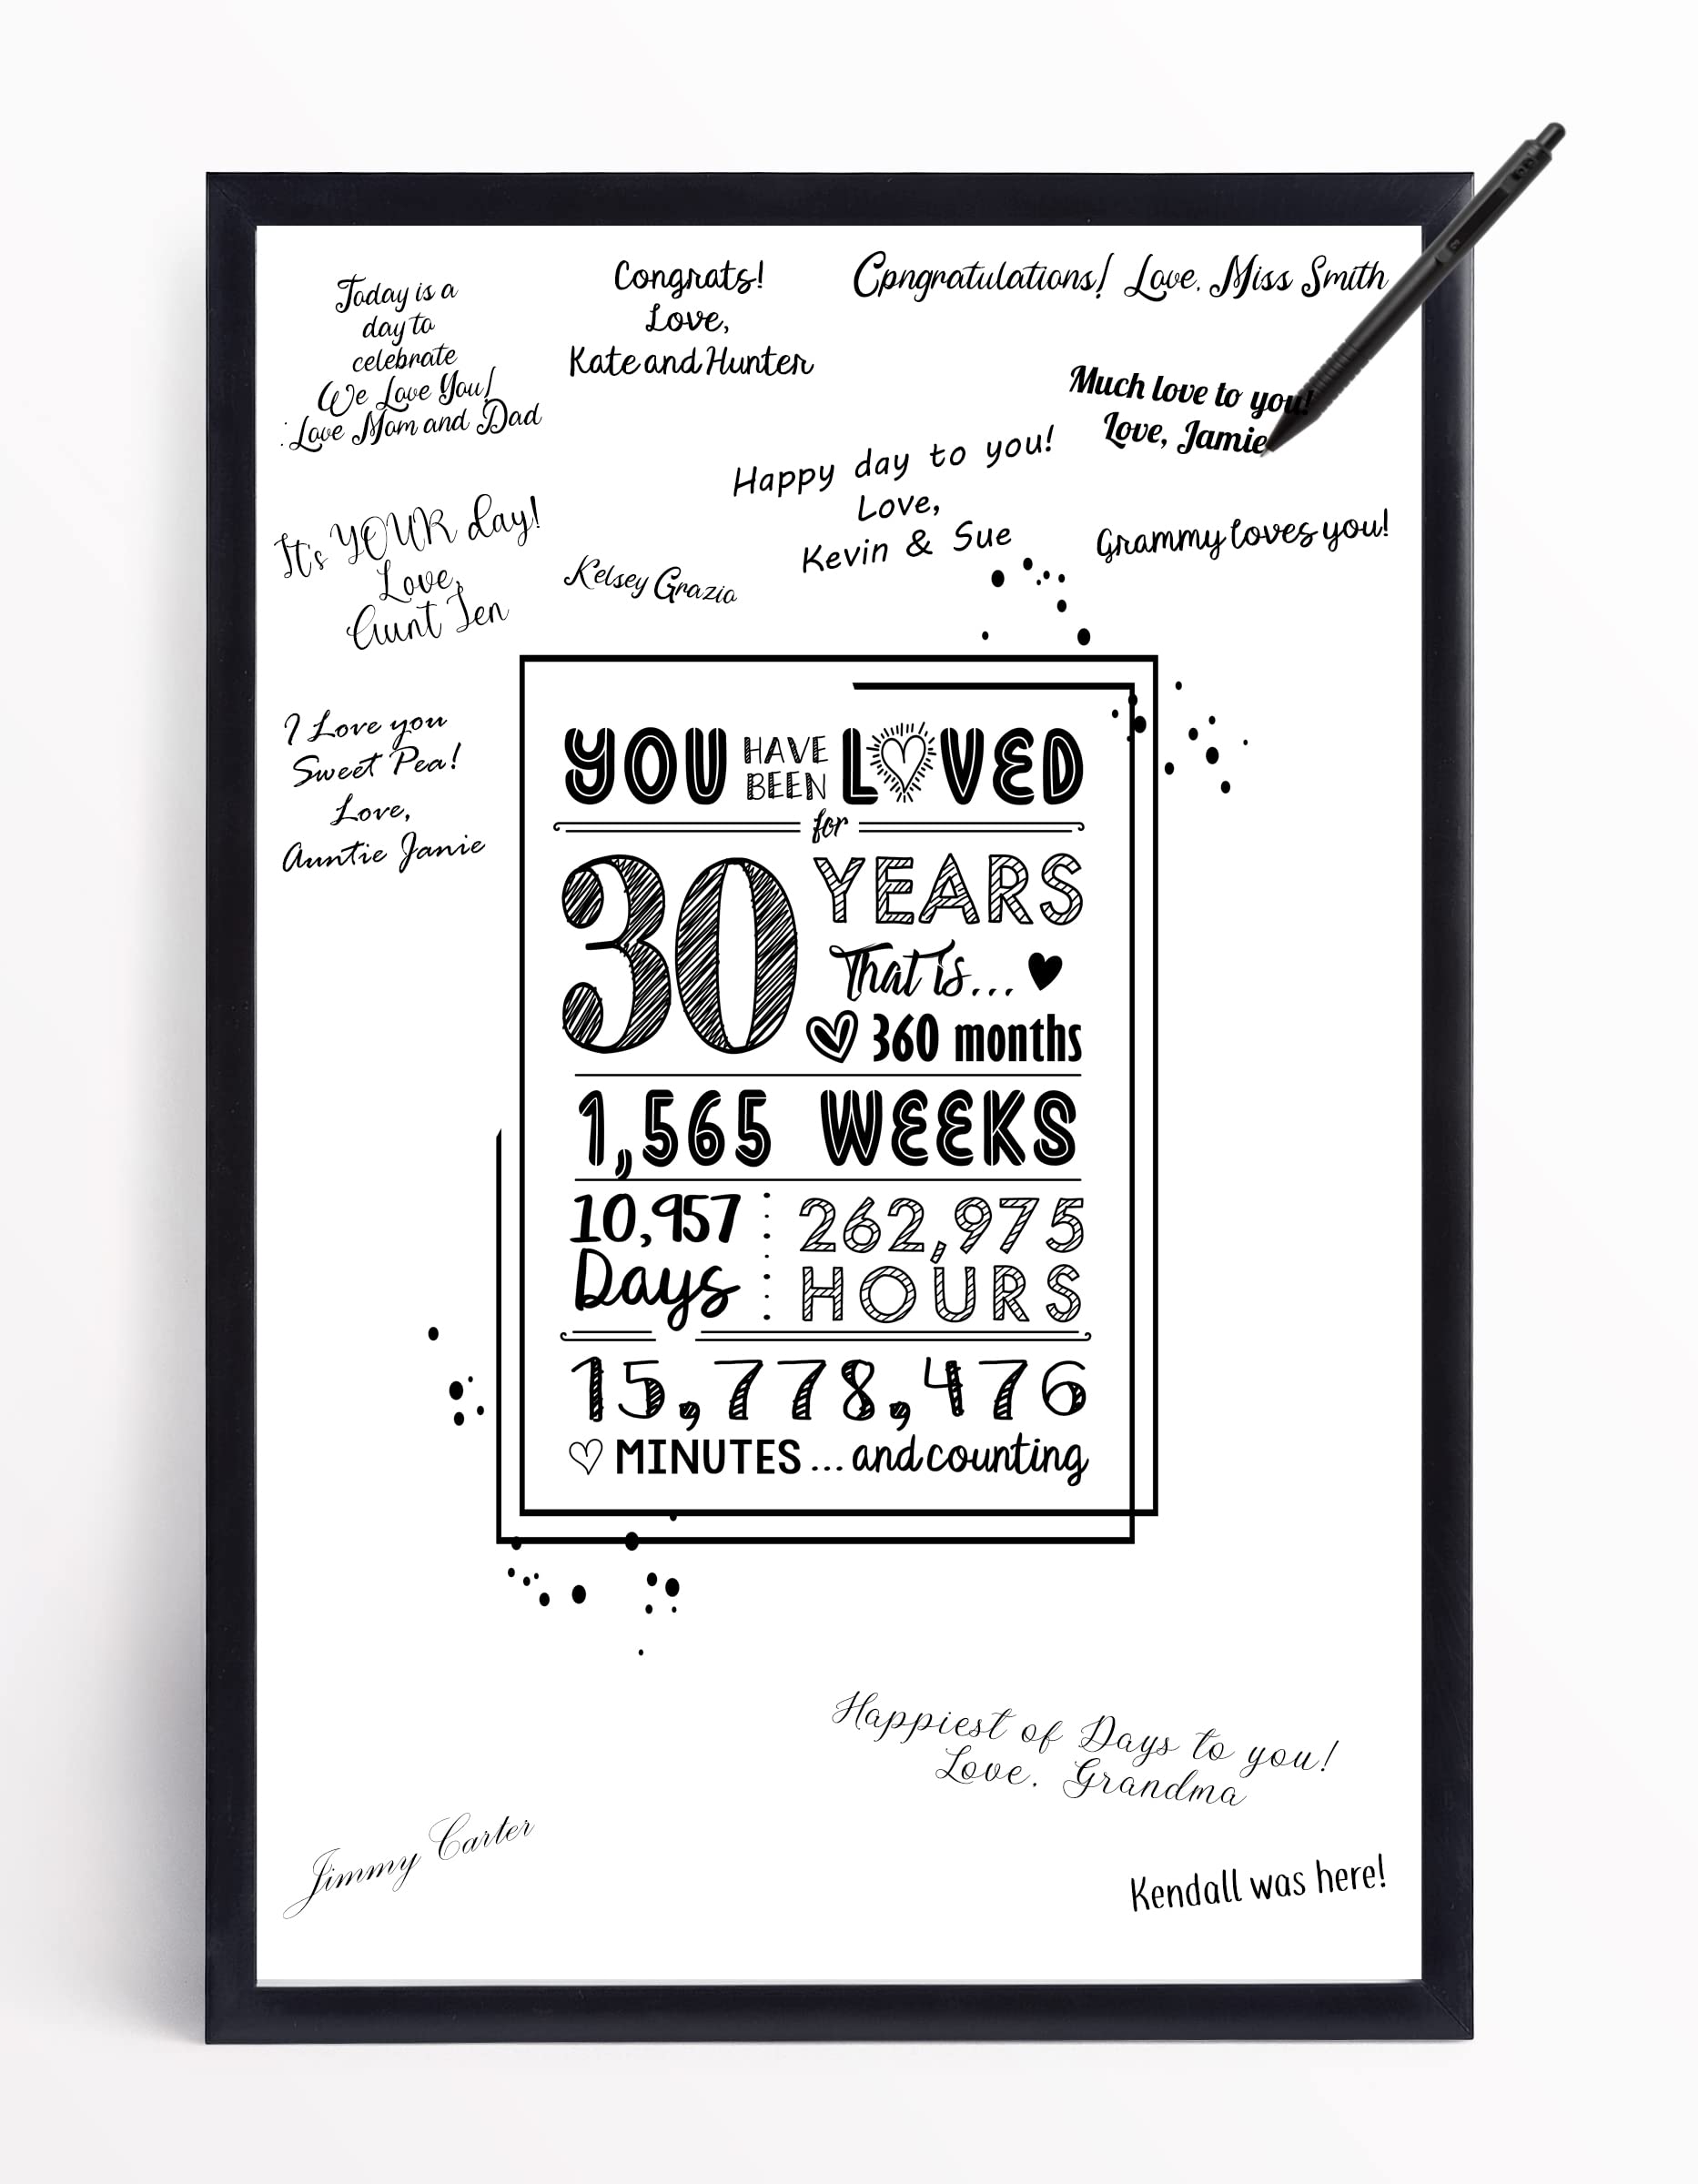 Today is a
day to
celebrate
We Love You!
Love Mom and Dad
Congrats!
Love,
Kate and Hunter
Cpngratulations! Love, Miss Smith
Much love to you!
Love, Jamie
Happy day to you!
Love,
Kevin & Sue
Grammy loves you!
It's YOUR day!
Love,
Aunt Jen
Kelsey Grazio
I Love you
Sweet Pea!
Love,
Auntie Janie
YOU HAVE BEEN LOVED
for
30 YEARS
That is...
360 months
1,565 WEEKS
10,957 Days
262,975 HOURS
15,778,476
MINUTES ... and counting
Happiest of Days to you!
Love, Grandma
Jimmy Carter
Kendall was here!